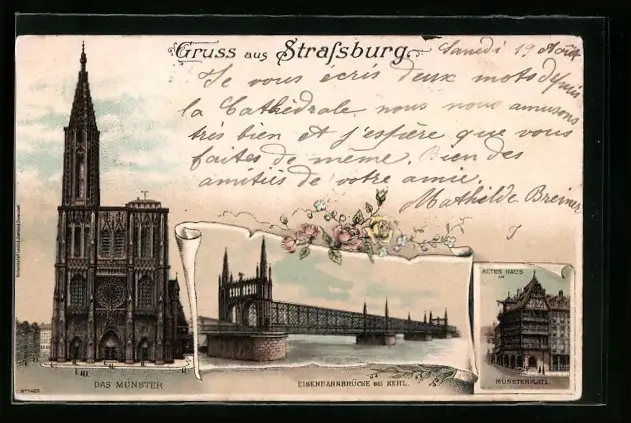 Gruss aus Straſsburg.
Samedi 19 Août
Je vous ecris deux mots depuis
la Cathédrale. nous nous amusons
très bien et j'espère que vous
faites de même. Bien des
amitiés de votre amie.
Mathilde Breiner
DAS MÜNSTER
EISENBAHNBRÜCKE BEI KEHL.
ALTES HAUS
AM
MÜNSTERPLATZ.